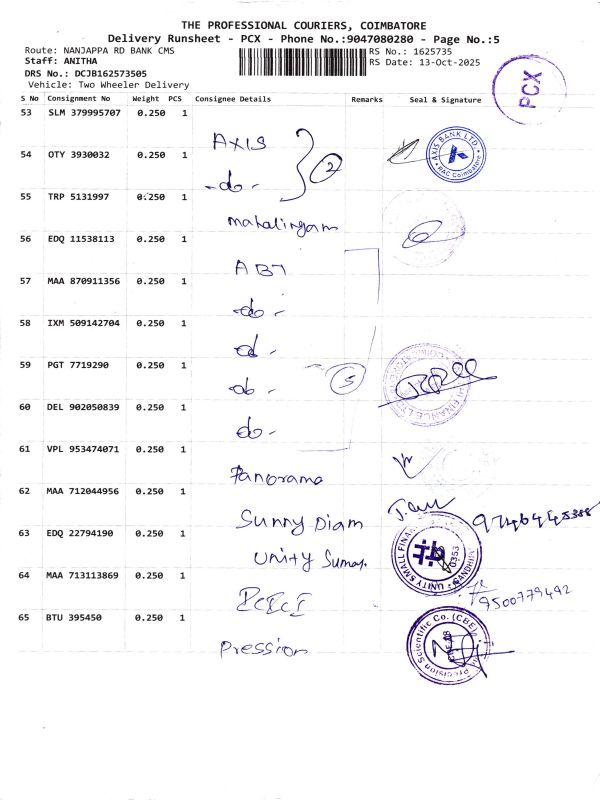 THE PROFESSIONAL COURIERS, COIMBATORE
Delivery Runsheet - PCX - Phone No.:9047080280 - Page No.:5
Route: NANJAPPA RD BANK CMS
RS No.: 1625735
Staff: ANITHA
RS Date: 13-Oct-2025
DRS No.: DCJB162573505
Vehicle: Two Wheeler Delivery
PCX
S No Consignment No Weight PCS Consignee Details Remarks Seal & Signature
53 SLM 379995707 0.250 1 AXIS
54 OTY 3930032 0.250 1 -do- 2
AXIS BANK LTD
RAC Coimbatore
55 TRP 5131997 0.250 1 mahalingam
56 EDQ 11538113 0.250 1 ABT
57 MAA 870911356 0.250 1 do -
58 IXM 509142704 0.250 1 d -
59 PGT 7719290 0.250 1 do - 5
60 DEL 902050839 0.250 1 do -
61 VPL 953474071 0.250 1 Panorama
62 MAA 712044956 0.250 1 Sunny Diam
63 EDQ 22794190 0.250 1 Unity
UNITY SMALL FINAN
0353
64 MAA 713113869 0.250 1
9500779492
65 BTU 395450 0.250 1 Pression
Precision Scientific Co. (CBE)